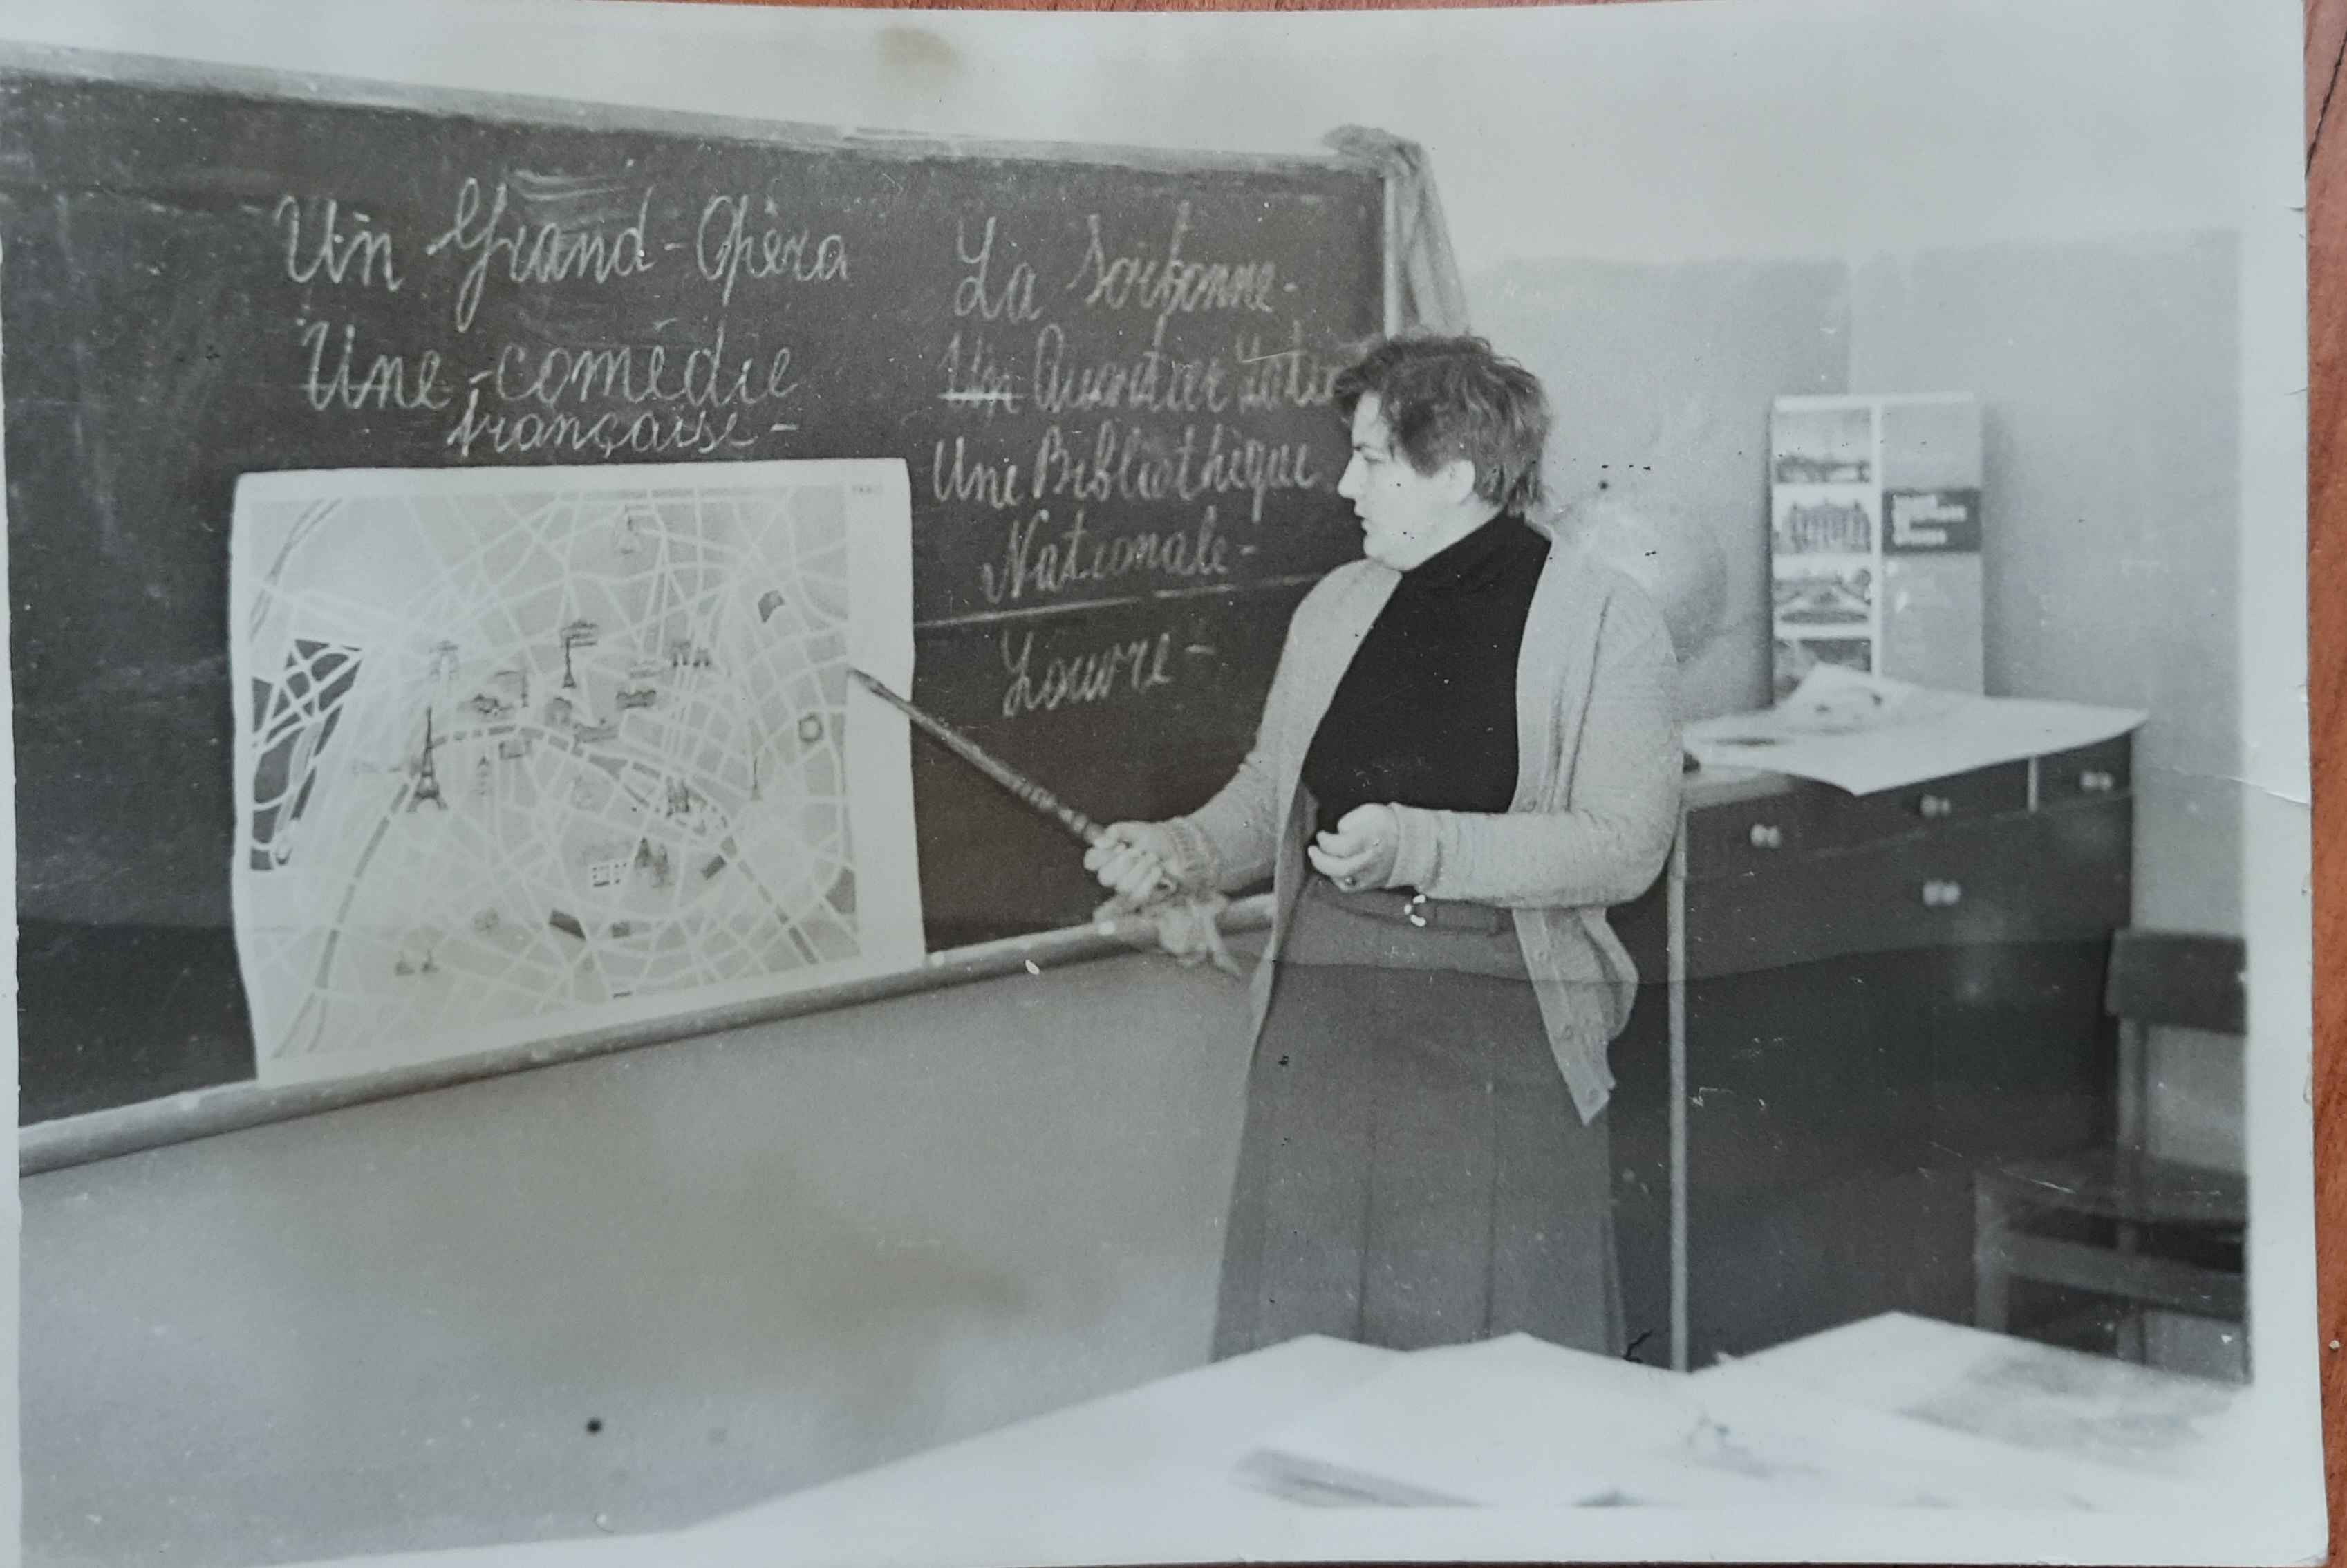 Un Grand-Opéra
Une-comédie
française-
La Sorbonne-
Un Quartier Latin
Une Bibliothèque
Nationale-
Louvre-
PARIS